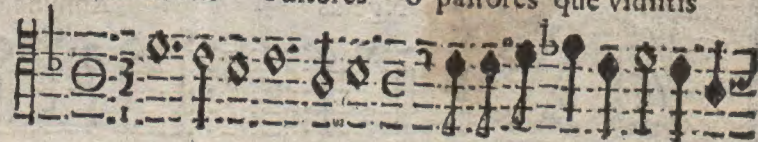 o paſtores que vidiſtis